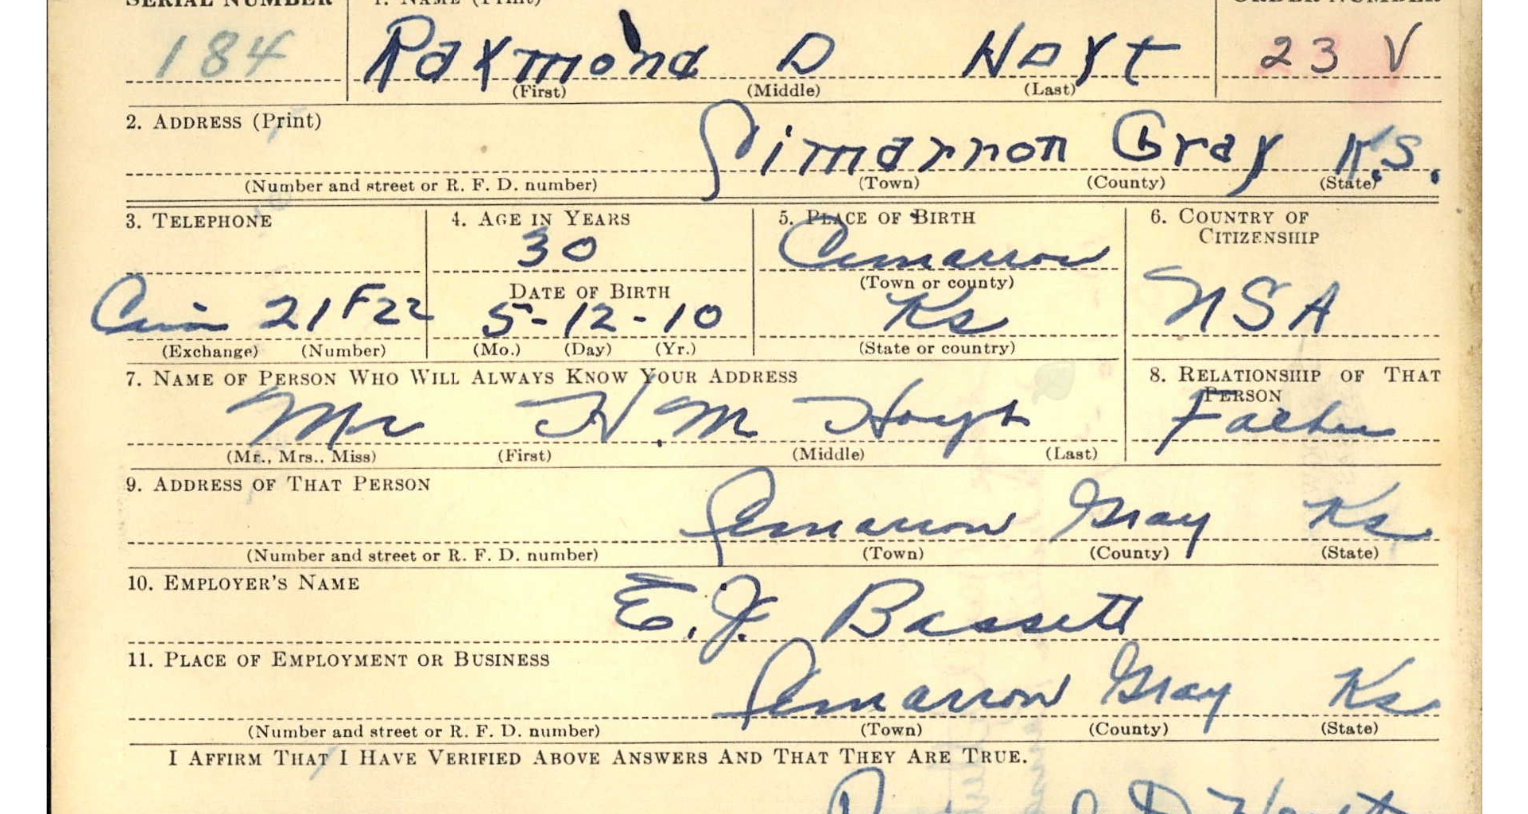 SERIAL NUMBER 1. NAME (Print) ORDER NUMBER
184 Raymond D Hoyt 23 V
(First) (Middle) (Last)
2. ADDRESS (Print)
Cimarron Gray K.S.
(Number and street or R. F. D. number) (Town) (County) (State)
3. TELEPHONE 4. AGE IN YEARS 5. PLACE OF BIRTH 6. COUNTRY OF
CITIZENSHIP
30 Cimarron
(Town or county)
DATE OF BIRTH
Cim 21F22 5-12-10 Ks USA
(Exchange) (Number) (Mo.) (Day) (Yr.) (State or country)
7. NAME OF PERSON WHO WILL ALWAYS KNOW YOUR ADDRESS 8. RELATIONSHIP OF THAT
PERSON
Mr H.M Hoyt Father
(Mr., Mrs., Miss) (First) (Middle) (Last)
9. ADDRESS OF THAT PERSON
Cimarron Gray Ks
(Number and street or R. F. D. number) (Town) (County) (State)
10. EMPLOYER'S NAME
E.J. Bassett
11. PLACE OF EMPLOYMENT OR BUSINESS
Cimarron Gray Ks
(Number and street or R. F. D. number) (Town) (County) (State)
I AFFIRM THAT I HAVE VERIFIED ABOVE ANSWERS AND THAT THEY ARE TRUE.
Raymond D Hoyt